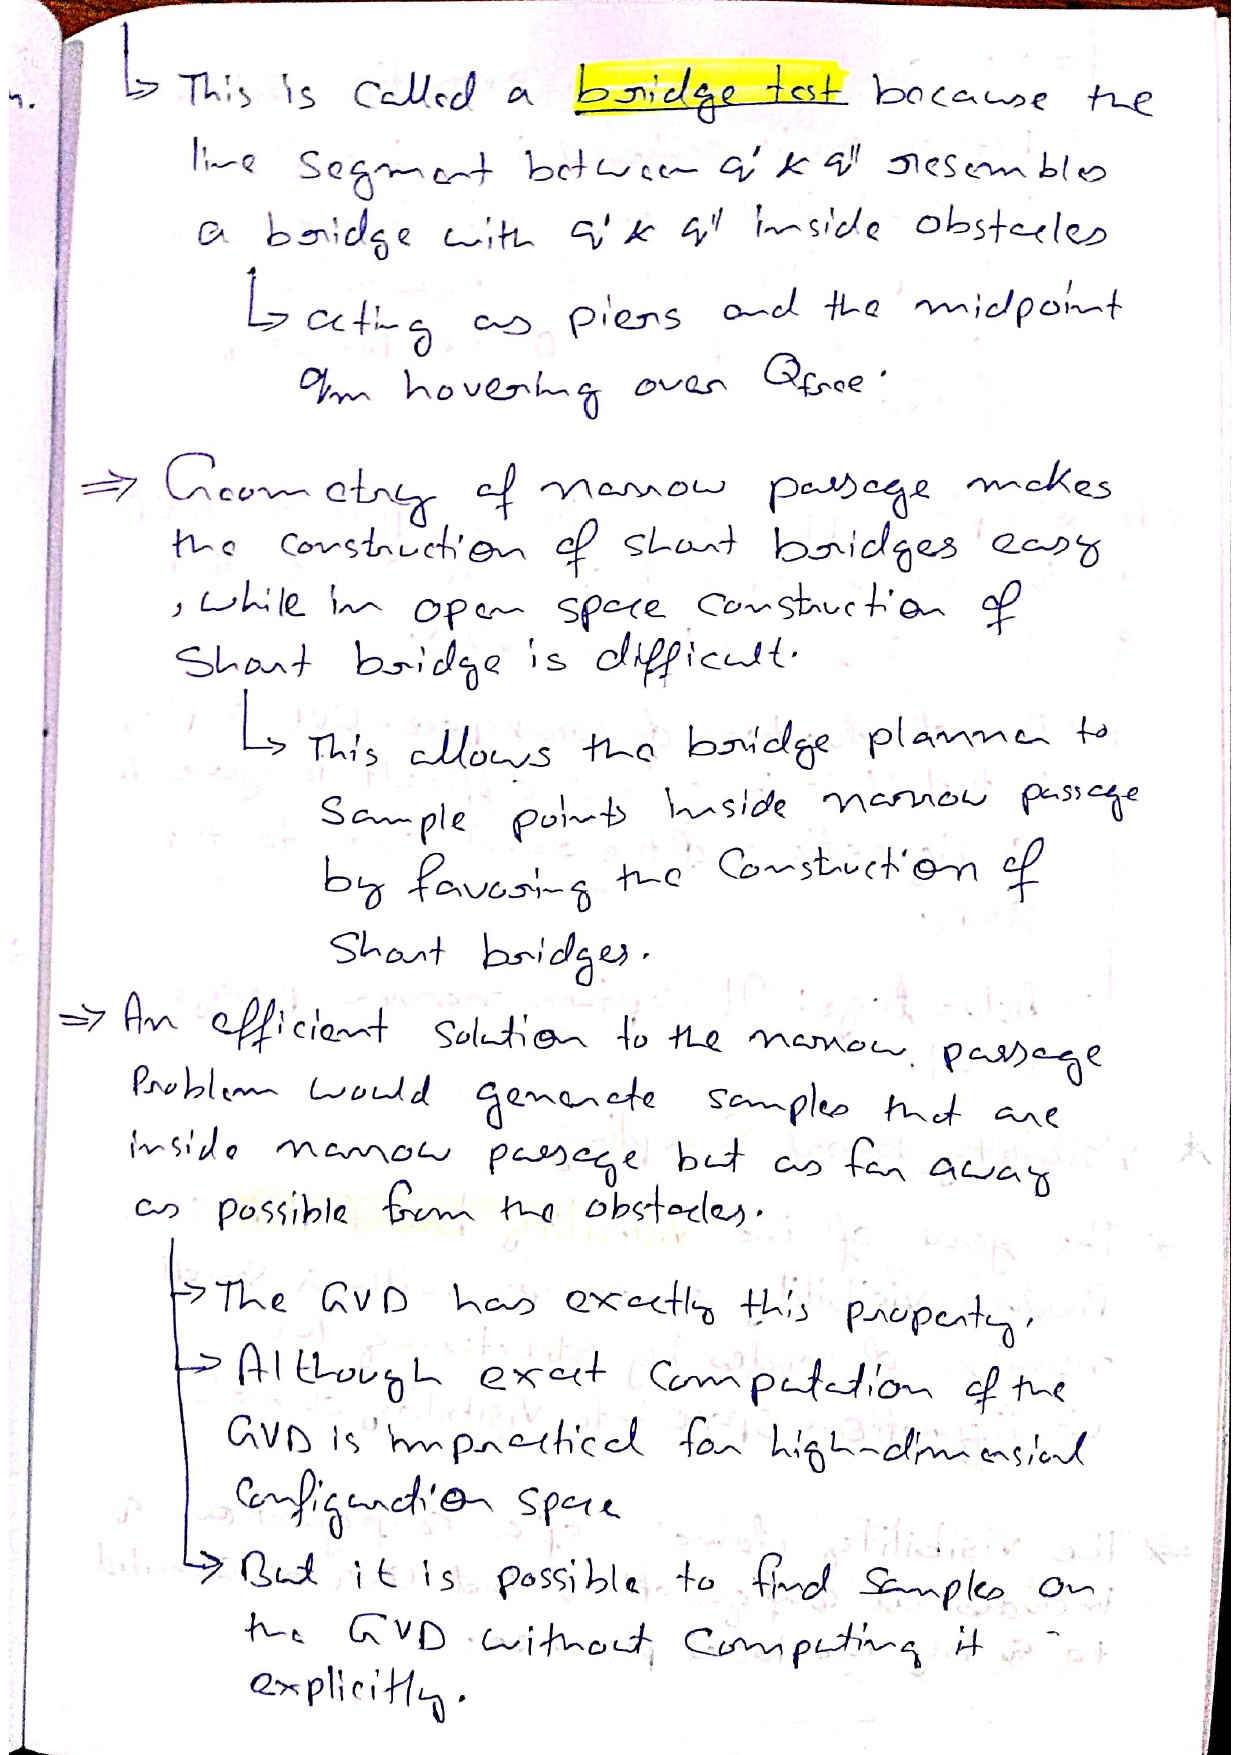 n.
↳ This is called a bridge test because the
line segment between q' & q'' resembles
a bridge with q' & q'' inside obstacles
↳ acting as piers and the midpoint
qm hovering over Qfree.
⇒ Geometry of narrow passage makes
the construction of short bridges easy
, while in open space construction of
short bridge is difficult.
↳ This allows the bridge planner to
sample points inside narrow passage
by favoring the construction of
short bridges.
⇒ An efficient solution to the narrow passage
problem would generate samples that are
inside narrow passage but as far away
as possible from the obstacles.
↳ The GVD has exactly this property.
↳ Although exact computation of the
GVD is impractical for high-dimensional
configuration space
↳ But it is possible to find samples on
the GVD without computing it
explicitly.